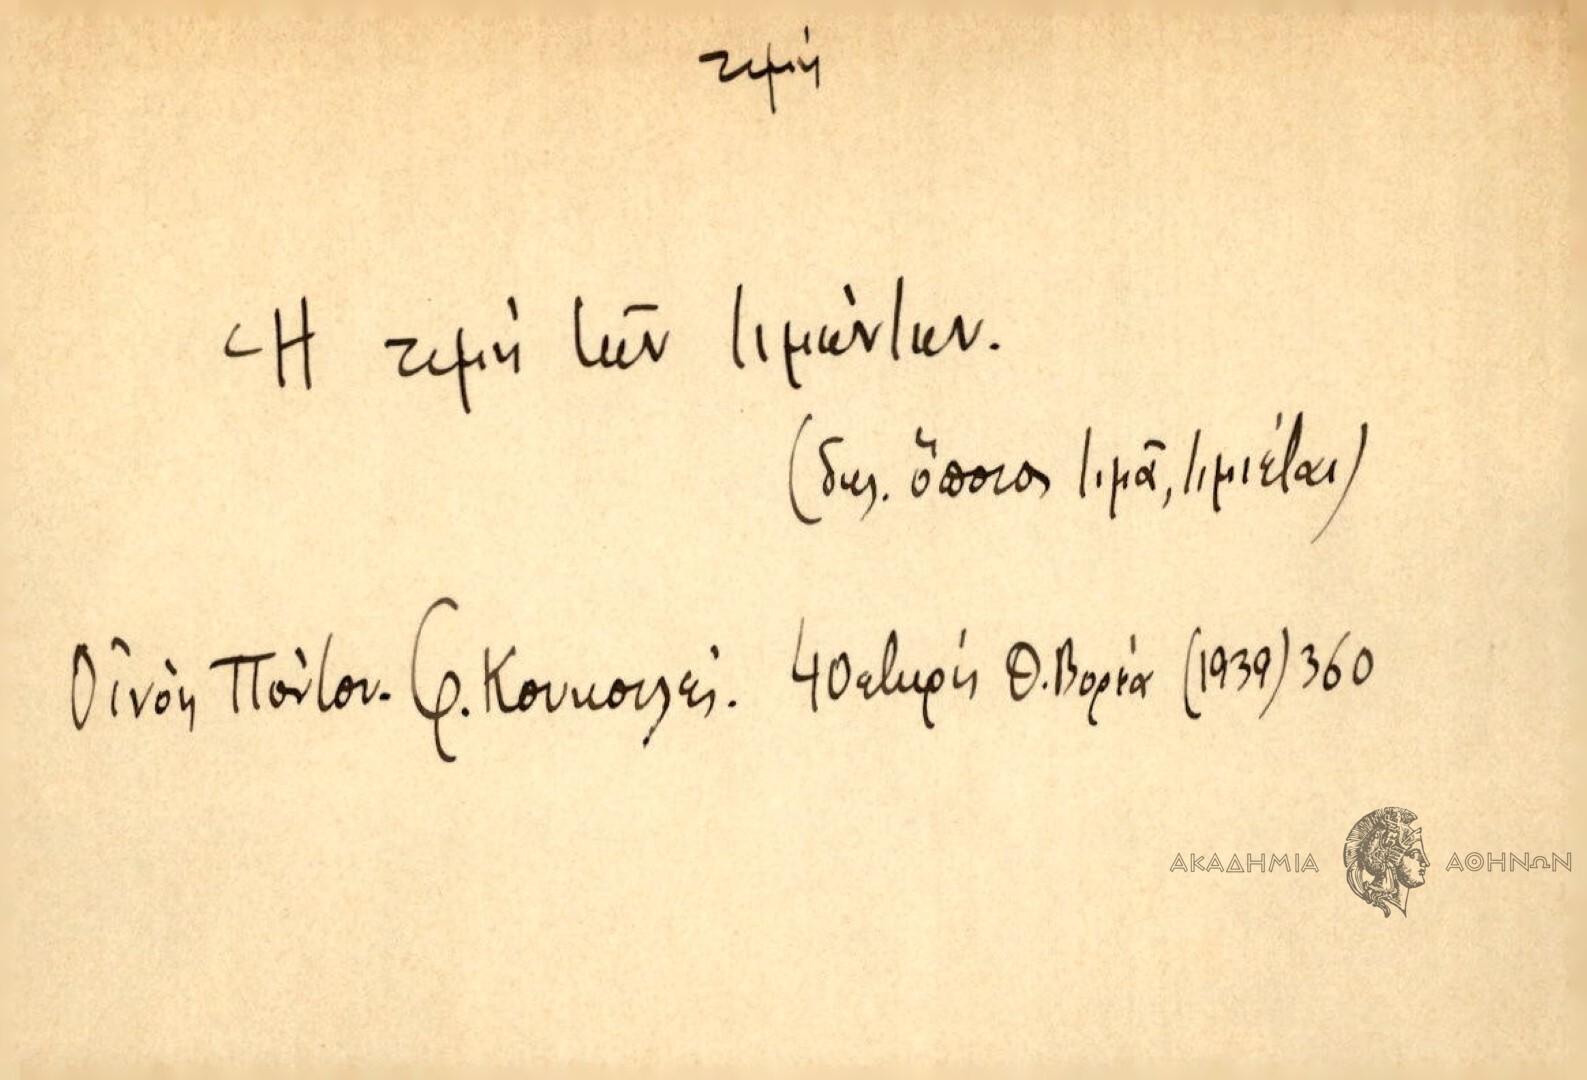 τιμή
Ἡ τιμή τῶν τιμώντων.
(δηλ. ὅποιος τιμᾷ, τιμιέται)
Οἰνόη Πόντου. Φ. Κουκουλές. Ἡ Οἰ Θ. Βορέα (1939) 360
ΑΚΑΔΗΜΙΑ ΑΘΗΝΩΝ